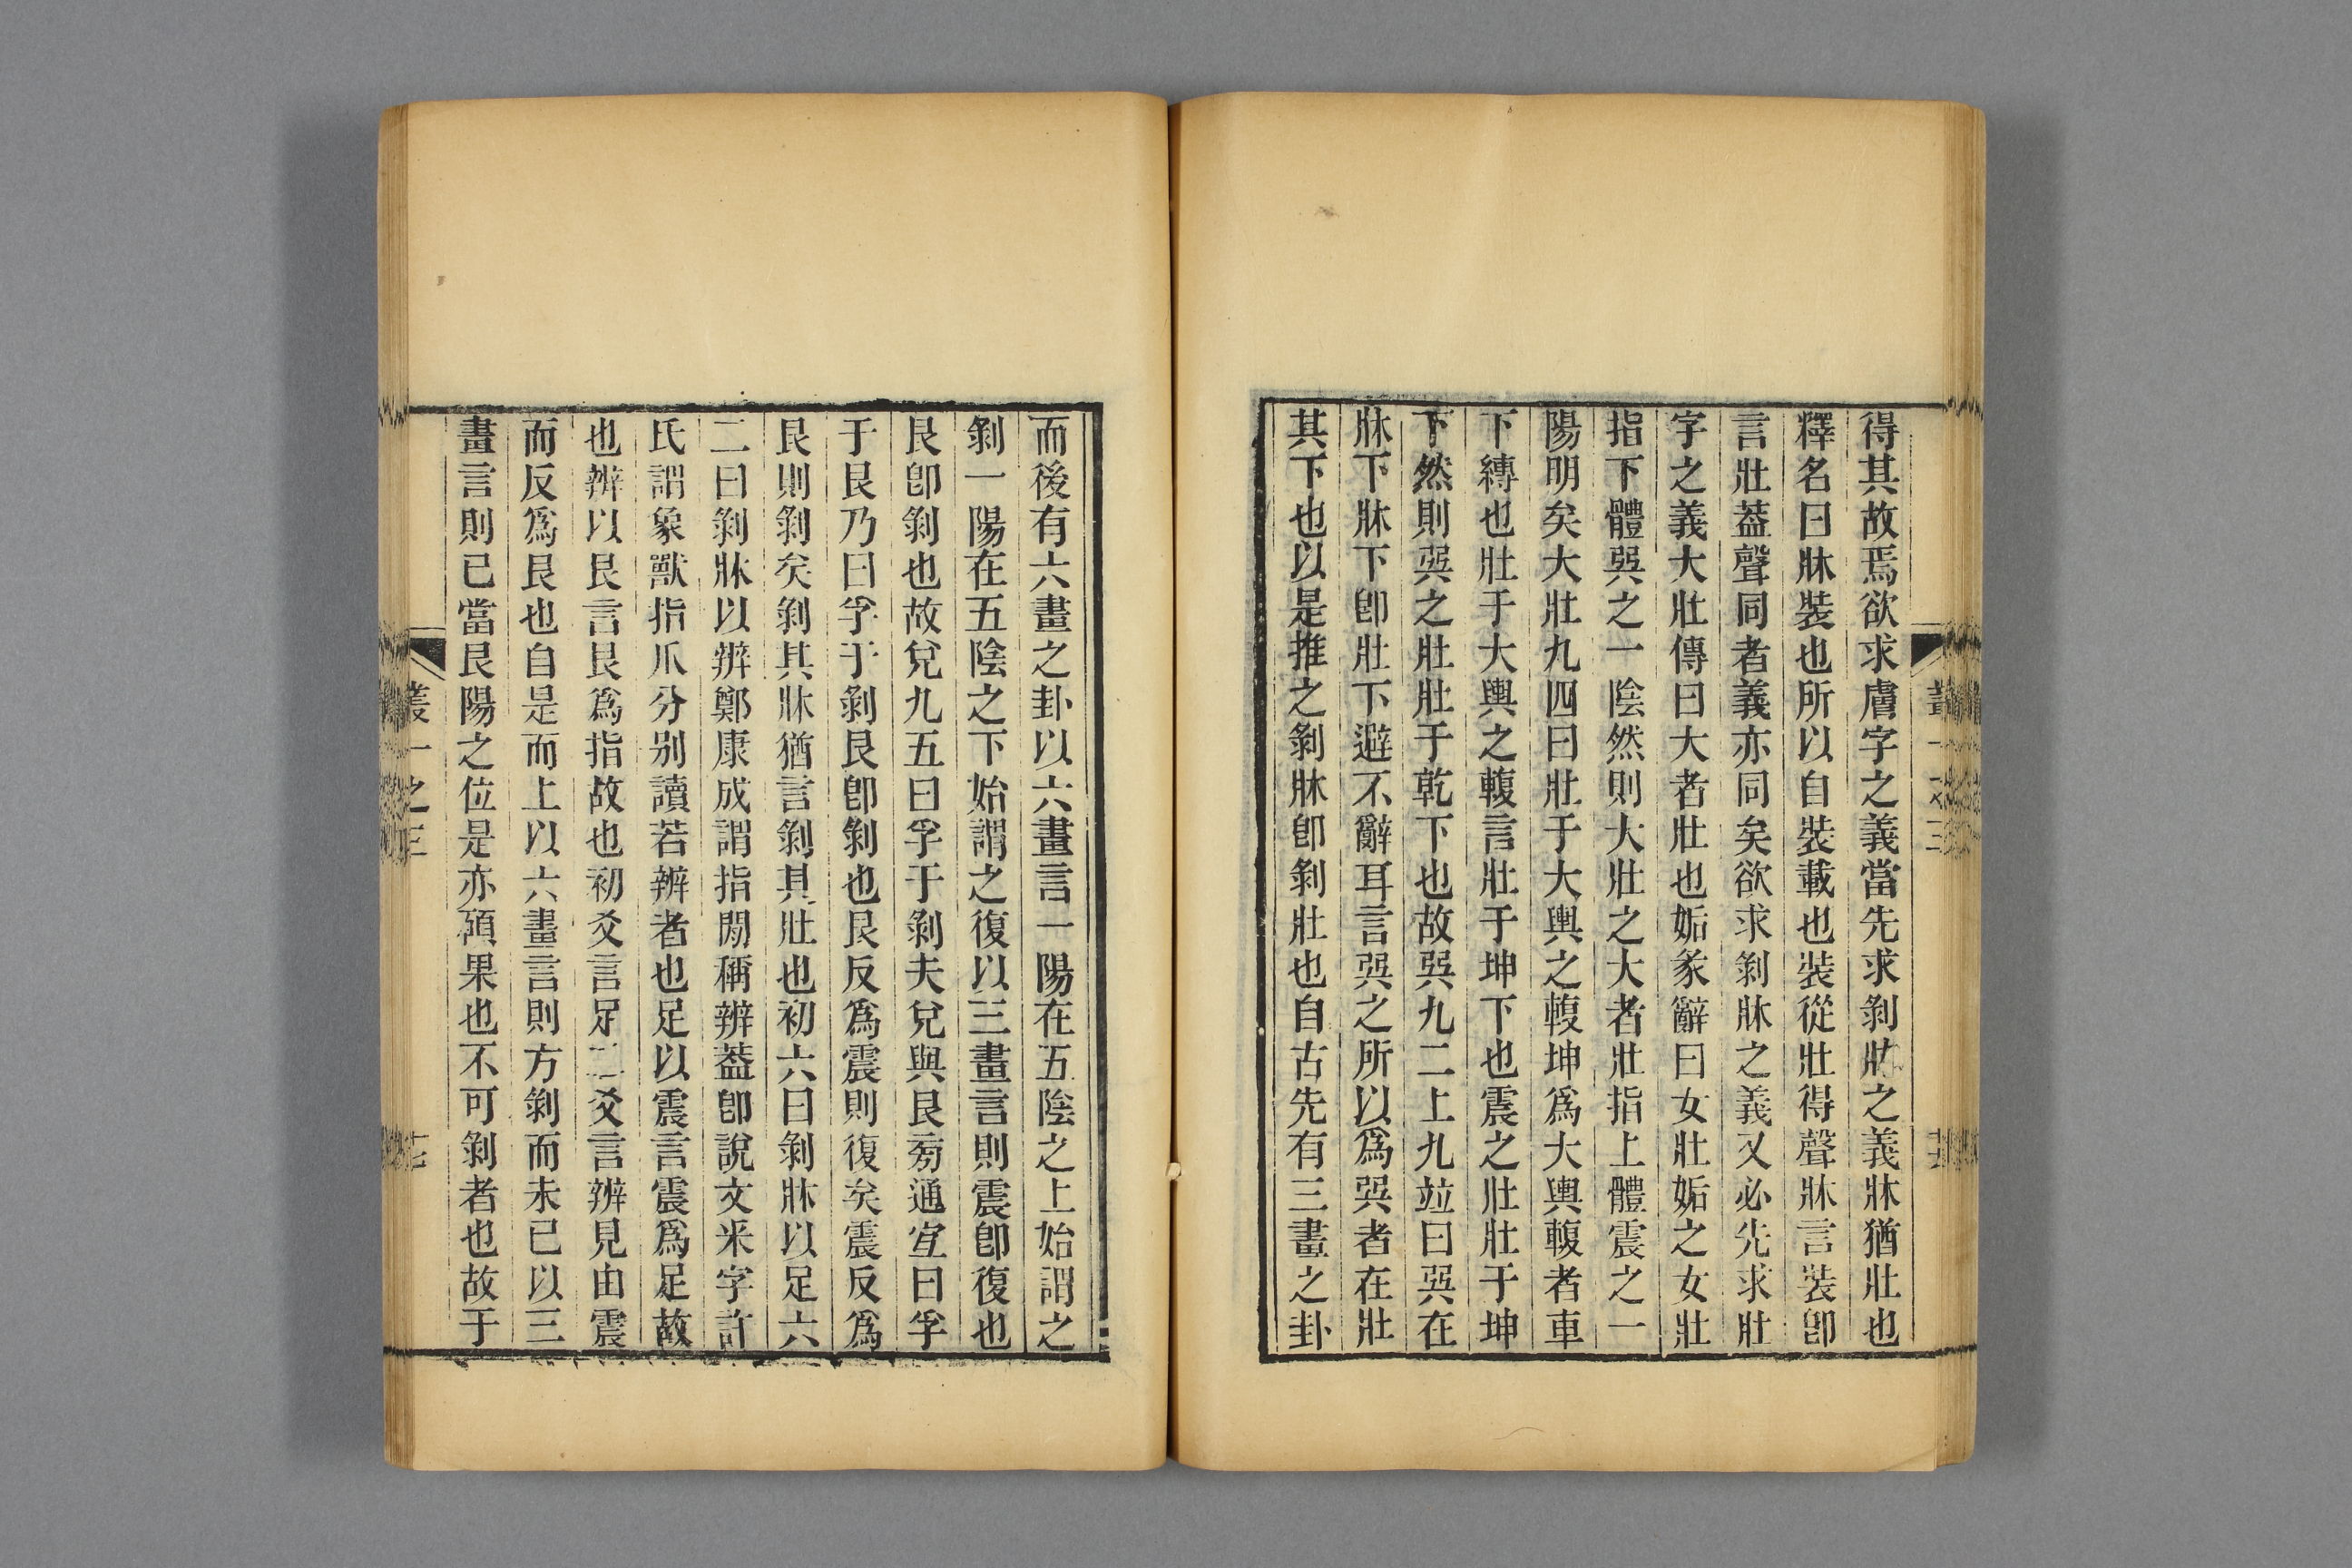 得其故焉欲求膚字之義當先求剝牀之義牀猶壯也
釋名曰牀裝也所以自裝載也裝從壯得聲牀言裝卽
言壯葢聲同者義亦同矣欲求剝牀之義又必先求壯
字之義大壯傳曰大者壯也姤彖辭曰女壯姤之女壯
指下體巽之一陰然則大壯之大者壯指上體震之一
陽明矣大壯九四曰壯于大輿之輹坤爲大輿輹者車
下縛也壯于大輿之輹言壯于坤下也震之壯壯于坤
下然則巽之壯壯于乾下也故巽九二上九竝曰巽在
牀下牀下卽壯下避不辭耳言巽之所以爲巽者在壯
其下也以是推之剝牀卽剝壯也自古先有三畫之卦
而後有六畫之卦以六畫言一陽在五陰之上始謂之
剝一陽在五陰之下始謂之復以三畫言則震卽復也
艮卽剝也故兌九五曰孚于剝夫兌與艮旁通宐曰孚
于艮乃曰孚于剝艮卽剝也艮反爲震則復矣震反爲
艮則剝矣剝其牀猶言剝其壯也初六曰剝牀以足六
二曰剝牀以辨鄭康成謂指閒稱辨葢卽說文釆字許
氏謂象獸指爪分別讀若辨者也足以震言震爲足故
也辨以艮言艮爲指故也初爻言足二爻言辨見由震
而反爲艮也自是而上以六畫言則方剝而未已以三
畫言則已當艮陽之位是亦碩果也不可剝者也故于
叢一之三